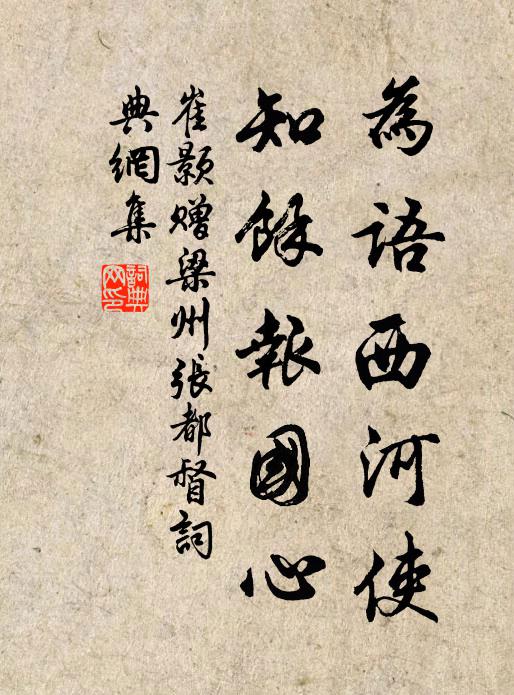 為語西河使
知餘報國心
崔顥贈梁州張都督詞
典網集
詞典網印